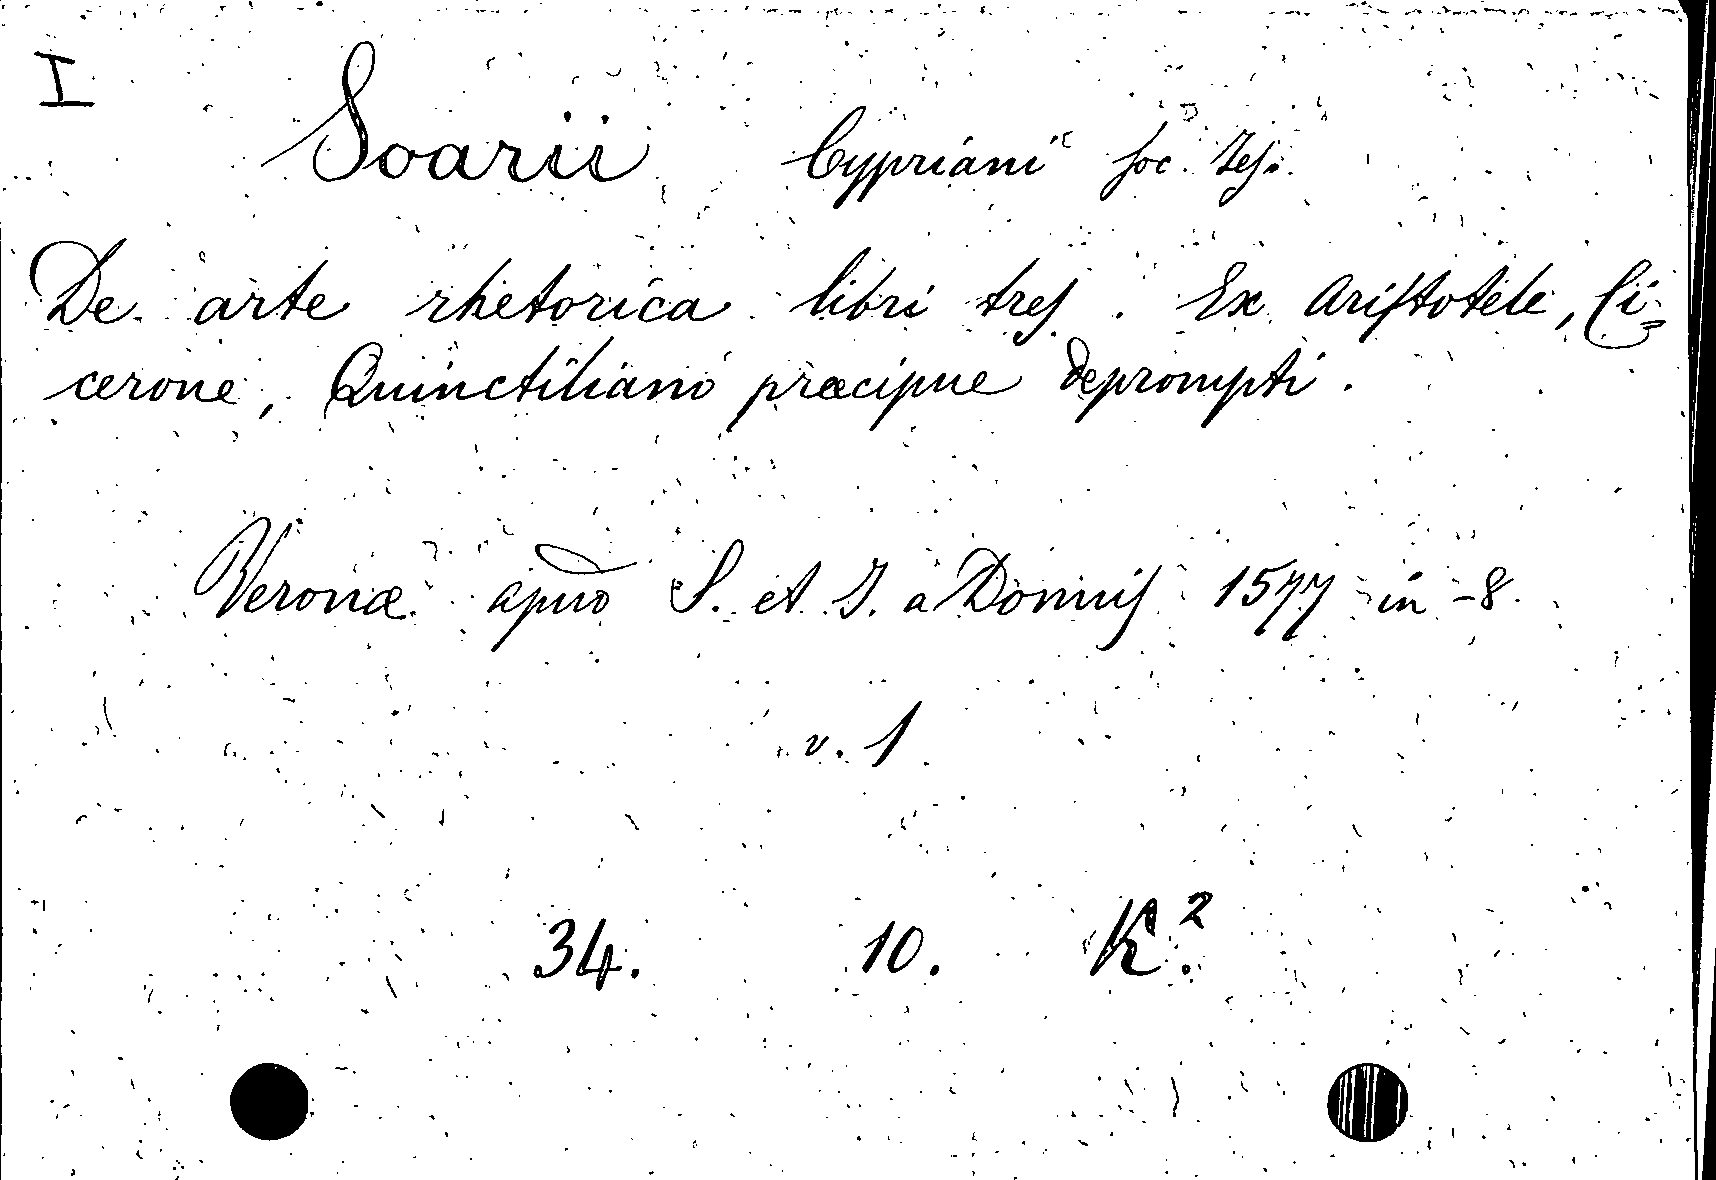 I
Soarii Cypriani soc. Jes.
De arte rhetorica libri tres. Ex Aristotele, Ci=
cerone, Quinctiliano præcipue deprompti.
Veronæ apud S. et J. a Donnis 1577 in-8.
v. 1
34. 10. K.²